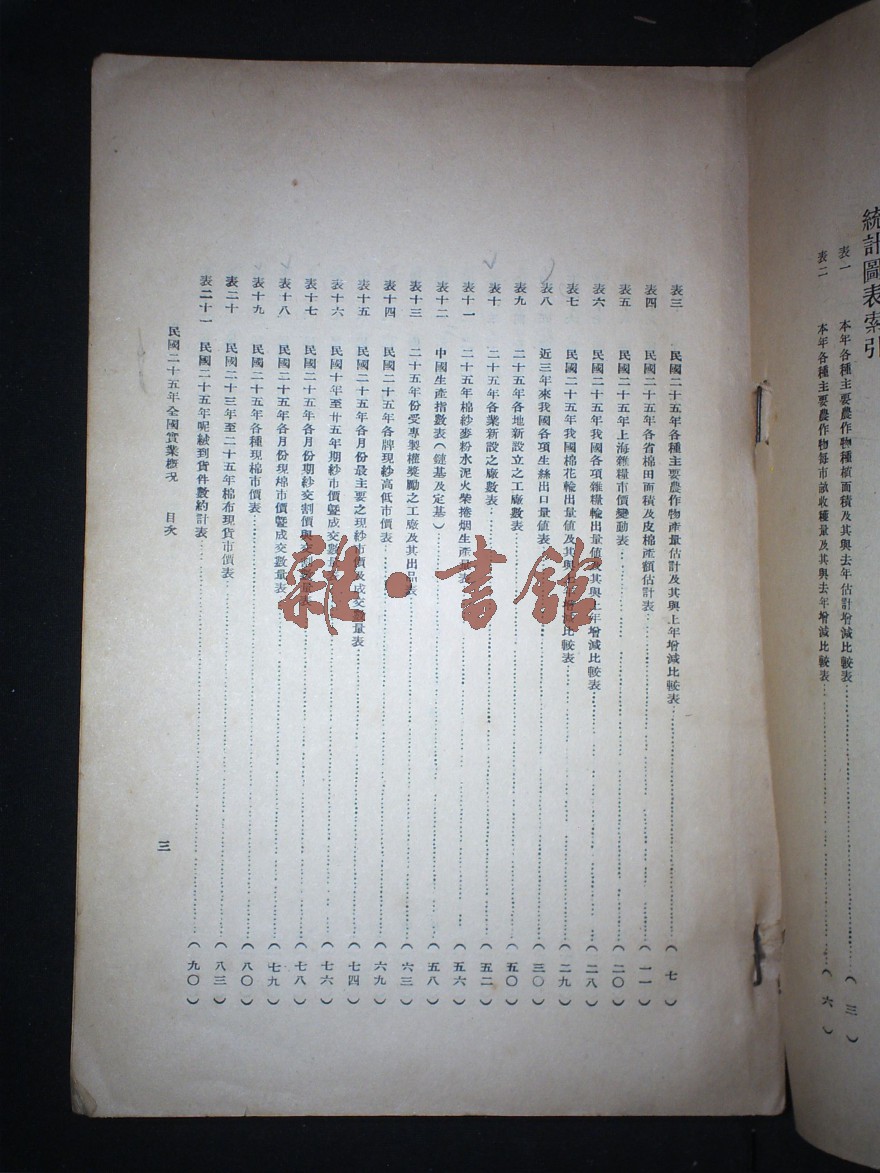 統計圖表索引
表一　本年各種主要農作物種植面積及其與去年估計增減比較表…（三）
表二　本年各種主要農作物每市畝收穫量及其與去年增減比較表…（六）
表三　民國二十五年各種主要農作物產量估計及其與上年增減比較表…（七）
表四　民國二十五年各省棉田面積及皮棉產額估計表…（一一）
表五　民國二十五年上海雜糧市價變動表…（二〇）
表六　民國二十五年我國各項雜糧輸出量值及其與上年增減比較表…（二八）
表七　民國二十五年我國棉花輸出量值及其與上年增減比較表…（二九）
表八　近三年來我國各項生絲出口量值表…（三〇）
表九　二十五年各地新設立之工廠數表…（五〇）
表十　二十五年各業新設之廠數表…（五二）
表十一　二十五年棉紗麥粉水泥火柴捲烟生產量表…（五六）
表十二　中國生產指數表（鏈基及定基）…（五八）
表十三　二十五年份受專製權獎勵之工廠及其出品表…（六三）
表十四　民國二十五年各牌現紗高低市價表…（六九）
表十五　民國二十五年各月份最主要之現紗市價及成交數量表…（七四）
表十六　民國十年至廿五年期紗市價暨成交數量表…（七六）
表十七　民國二十五年各月份期紗交割價與交割數量表…（七八）
表十八　民國二十五年各月份現棉市價暨成交數量表…（七九）
表十九　民國二十五年各種現棉市價表…（八〇）
表二十　民國二十三年至二十五年棉布現貨市價表…（八三）
表二十一　民國二十五年呢絨到貨件數約計表…（九〇）
民國二十五年全國實業概況　目次
三
雜·書館